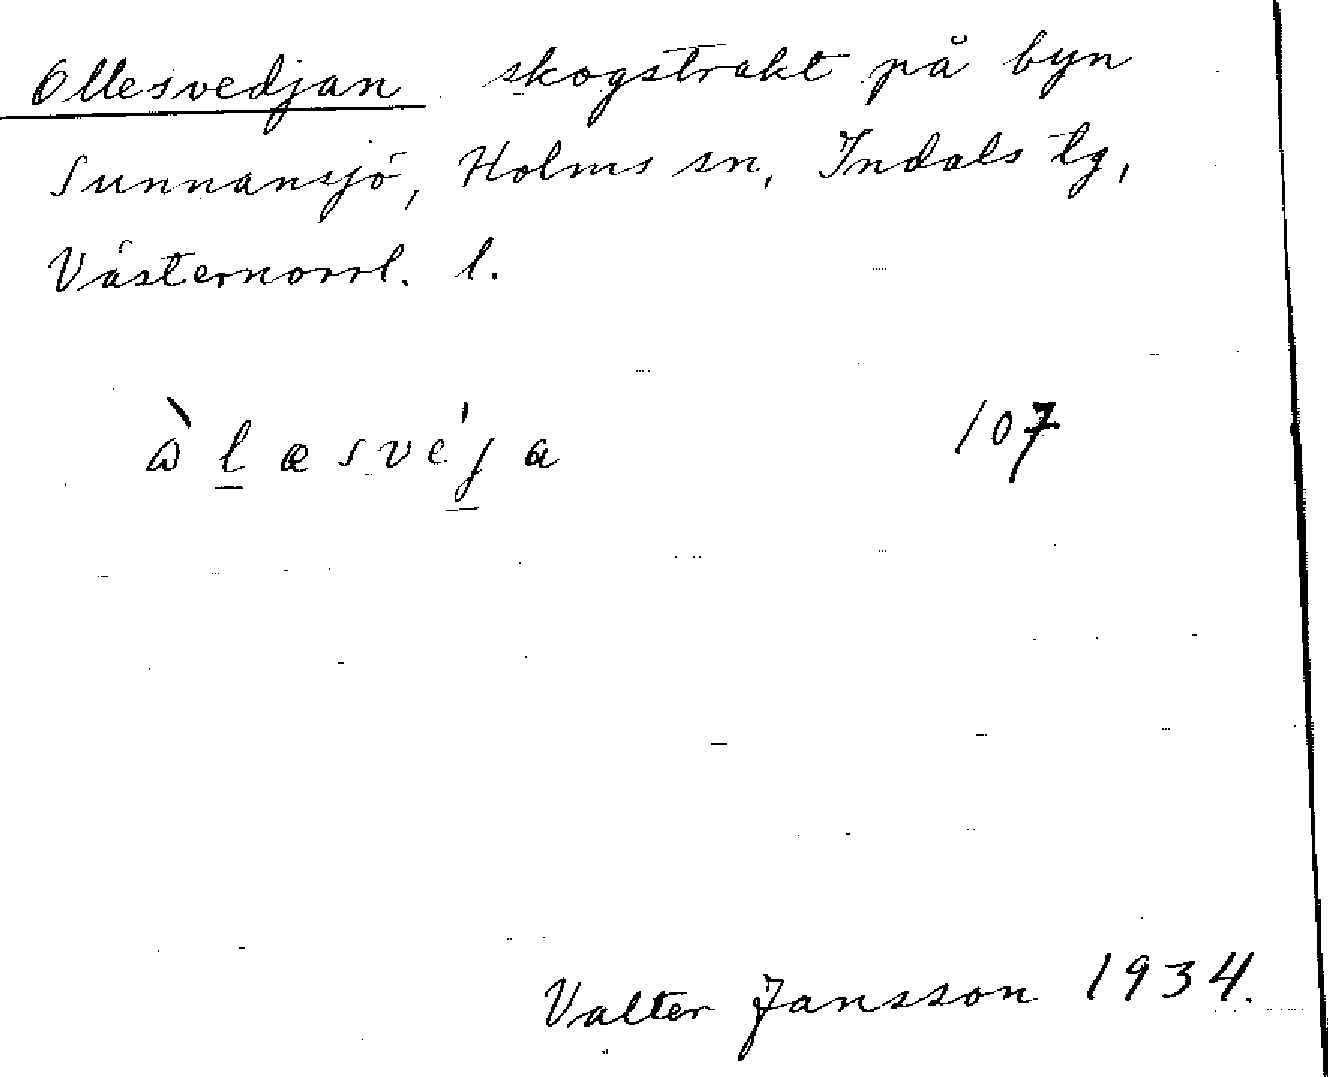 Ollesvedjan skogstrakt på byn
Sunnansjö, Holms sn, Indals tg,
Västernorrl. l.
ὼl̲æsvéj̲a 107
Valter Jansson 1934.